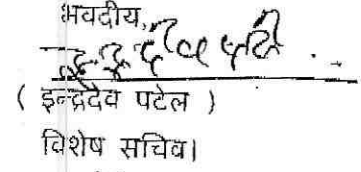 भवदीय,
( इन्द्रदेव पटेल )
विशेष सचिव।